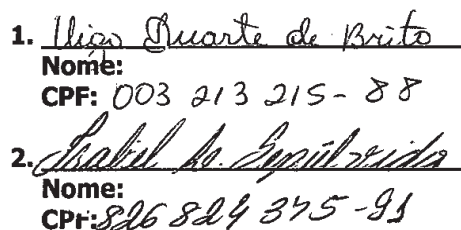 1. Higo Duarte de Brito
Nome:
CPF: 003 213 215-88
2. Isabel Sepúlvida
Nome:
CPF: 826 824 375-91